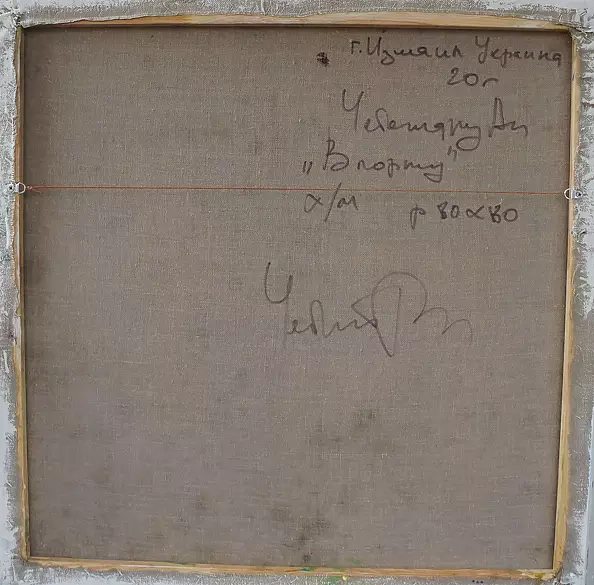 г. Измаил Украина
20г
Чеботару Ан
„В порту"
х/м р 80х80